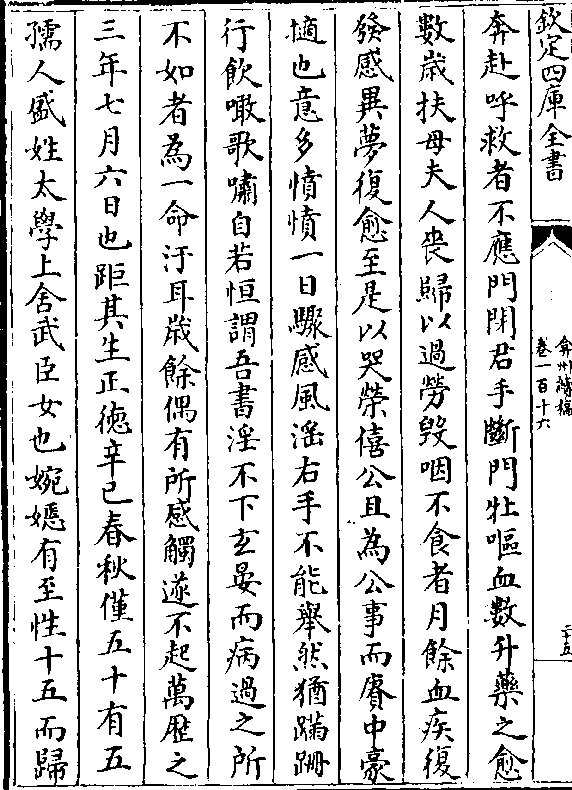 欽定四庫全書
弇州續稿
卷一百十六
二十五
奔赴呼救者不應門閉君手斷門牡嘔血數升藥之愈
數歲扶母夫人喪歸以過勞毀咽不食者月餘血疾復
發感異夢復愈至是以哭榮僖公且為公事而賡中豪
擿也意多憤憤一日驟感風淫右手不能舉然猶蹣跚
行飲噉歌嘯自若恒謂吾書淫不下玄晏而病過之所
不如者為一命汙耳歲餘偶有所感觸遂不起萬歷之
三年七月六日也距其生正徳辛巳春秋僅五十有五
孺人盛姓太學上舍武臣女也婉嫕有至性十五而歸